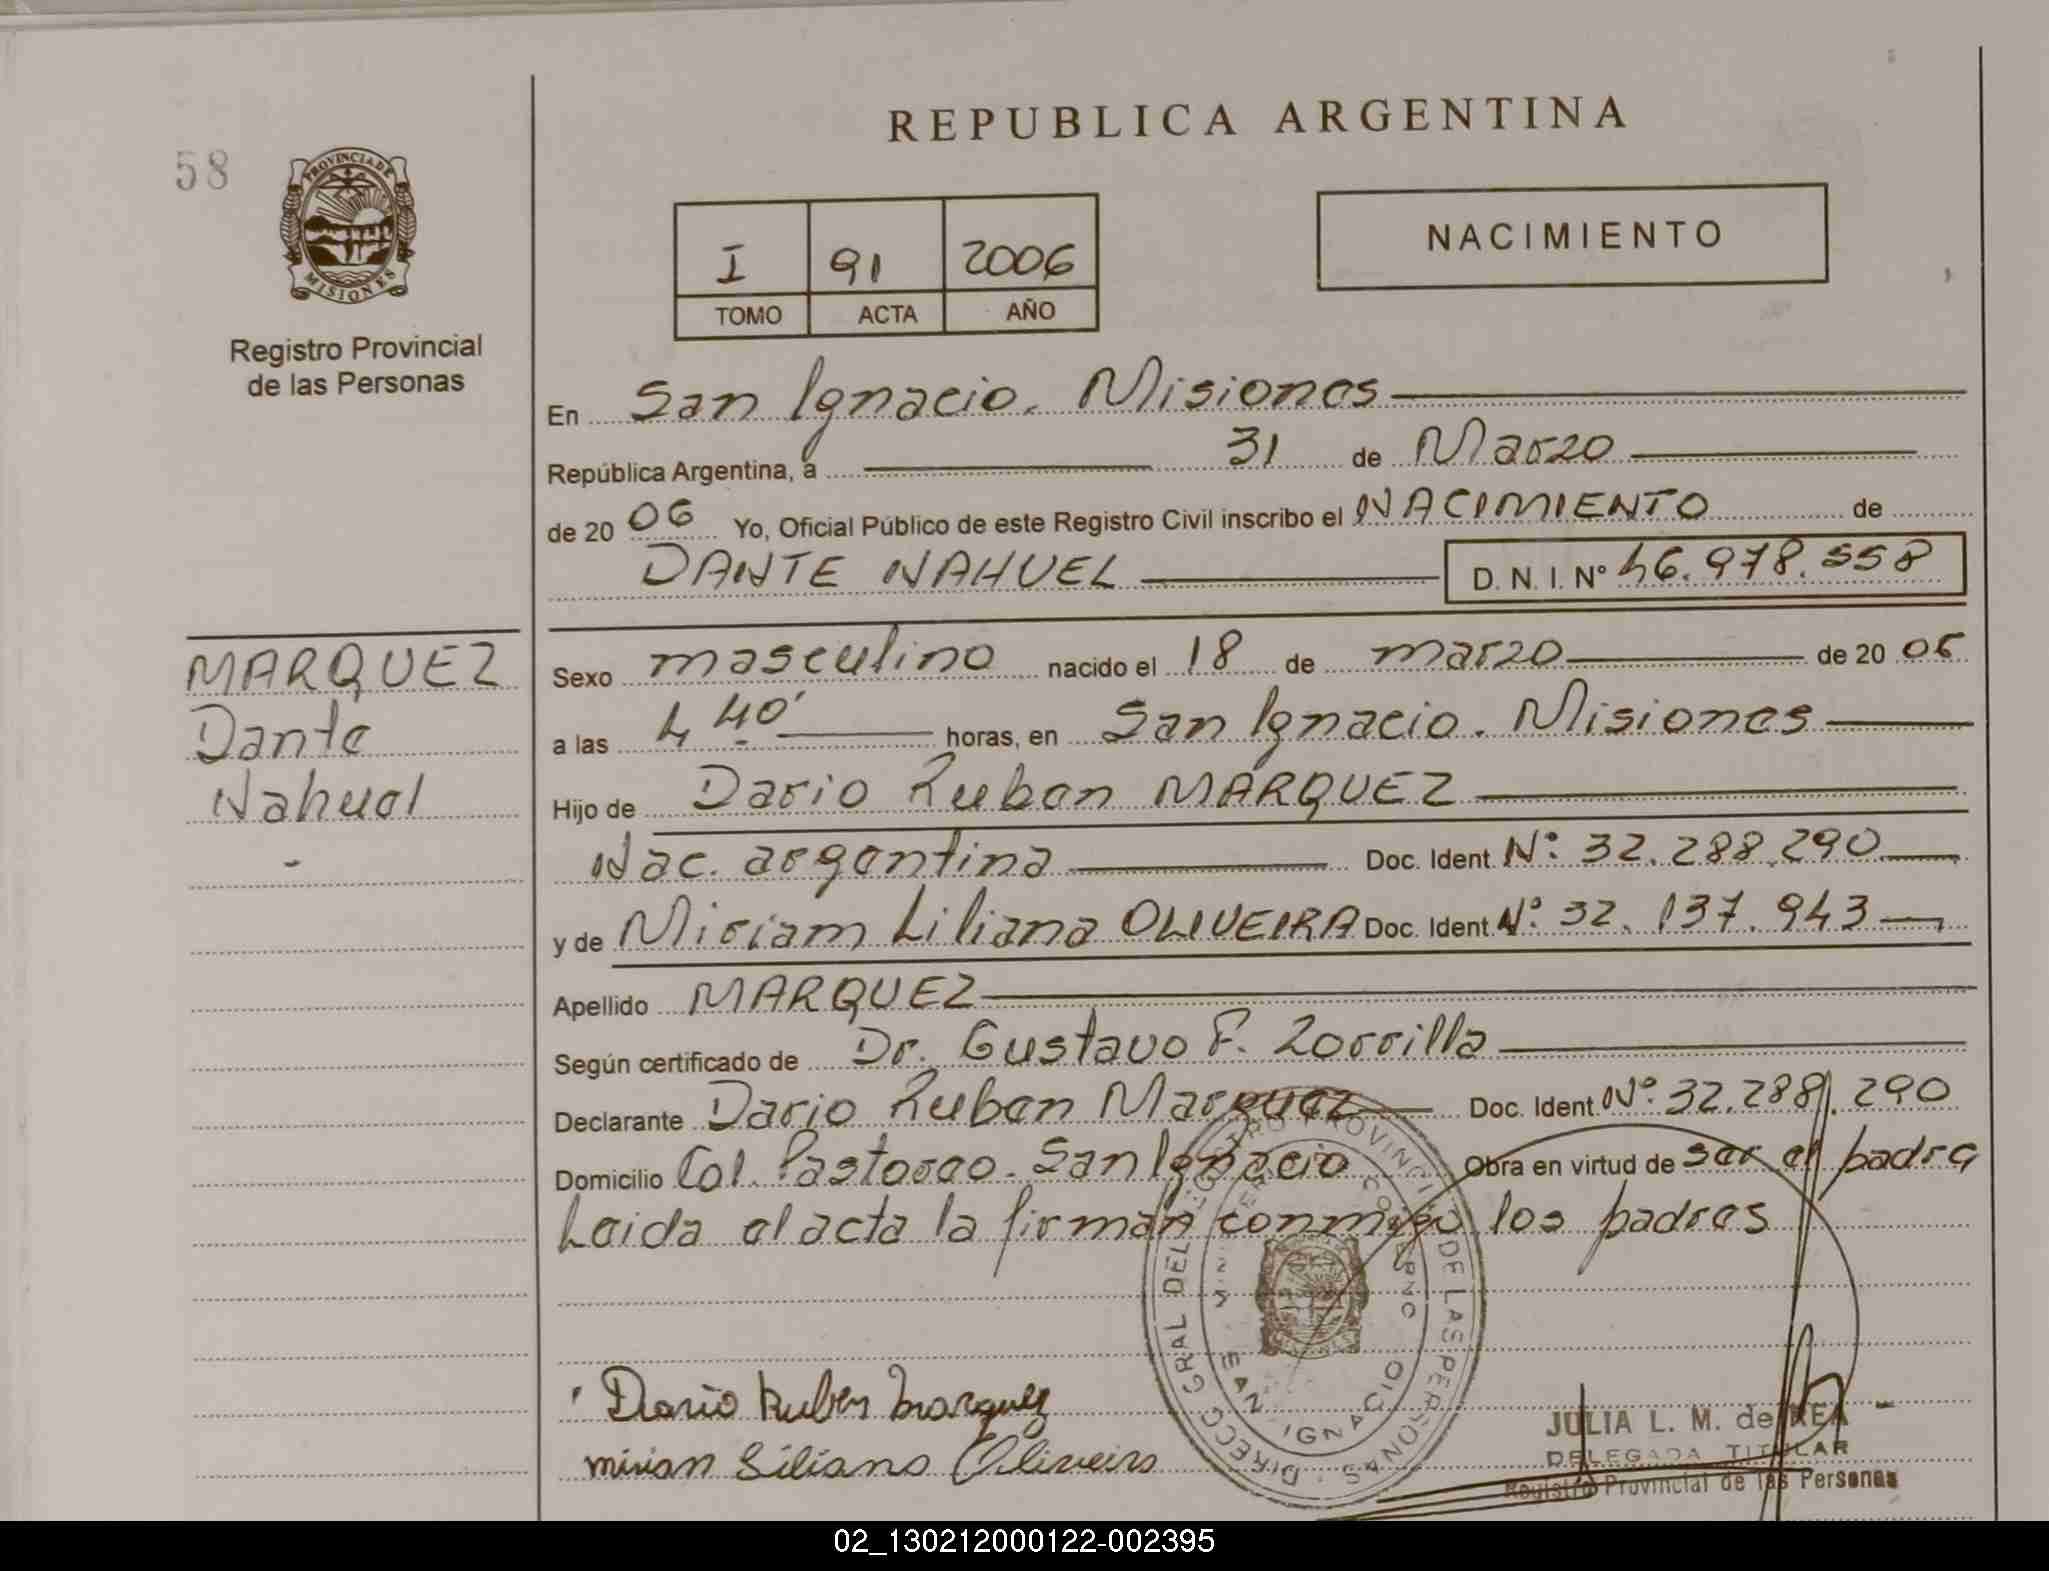 REPUBLICA ARGENTINA
58
PROVINCIA DE
MISIONES
Registro Provincial
de las Personas
I 91 2006
TOMO ACTA AÑO
NACIMIENTO
En San Ignacio. Misiones
República Argentina, a 31 de Marzo
de 20 06 Yo, Oficial Público de este Registro Civil inscribo el NACIMIENTO de
DANTE NAHUEL D. N. I. Nº 46.978.558
MARQUEZ
Dante
Nahuel
-
Sexo masculino nacido el 18 de marzo de 20 06
a las 4 40' horas, en San Ignacio. Misiones
Hijo de Dario Ruben MARQUEZ
Nac. argentina Doc. Ident. Nº: 32.288.290
y de Miriam Liliana OLIVEIRA Doc. Ident. Nº: 32.137.943
Apellido MARQUEZ
Según certificado de Dr. Gustavo F. Zorrilla
Declarante Dario Ruben Marquez Doc. Ident. Nº: 32.288.290
Domicilio Col. Pastoreo. San Ignacio Obra en virtud de ser el padre
Leida el acta la firman conmigo los padres
DIRECC GRAL DEL REGISTRO PROVINCIAL DE LAS PERSONAS
SAN IGNACIO
Dario Ruben Marquez
mirian Liliana Oliveira
JULIA L. M. de REA
DELEGADA TITULAR
Registro Provincial de las Personas
02_130212000122-002395